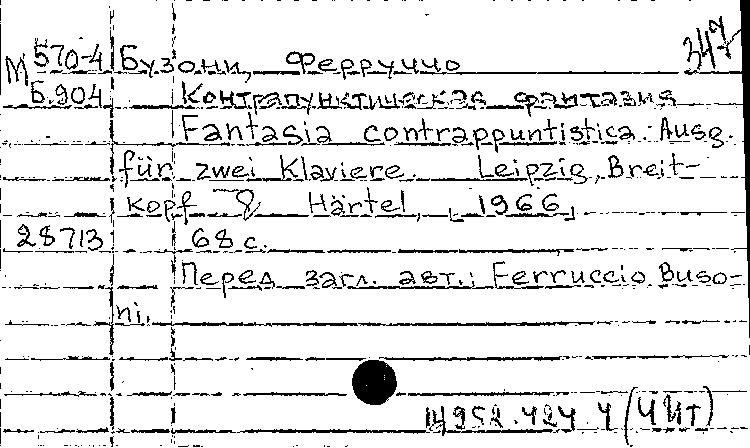 347
М 570-4 Бузони, Ферруччо
Б.904 Контрапунктическая фантазия
Fantasia contrappuntistica. Ausg.
für zwei Klaviere. Leipzig, Breit-
kopf & Härtel, [1966]
28713 68 с.
Перед загл. авт.: Ferruccio Buso-
ni.
Щ952.424.4 (4Ит)